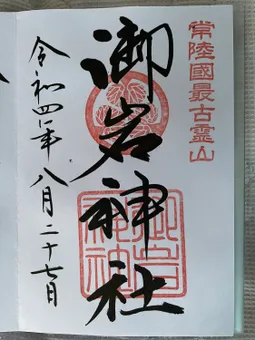 常陸國最古霊山
御岩神社
令和四年八月二十七日